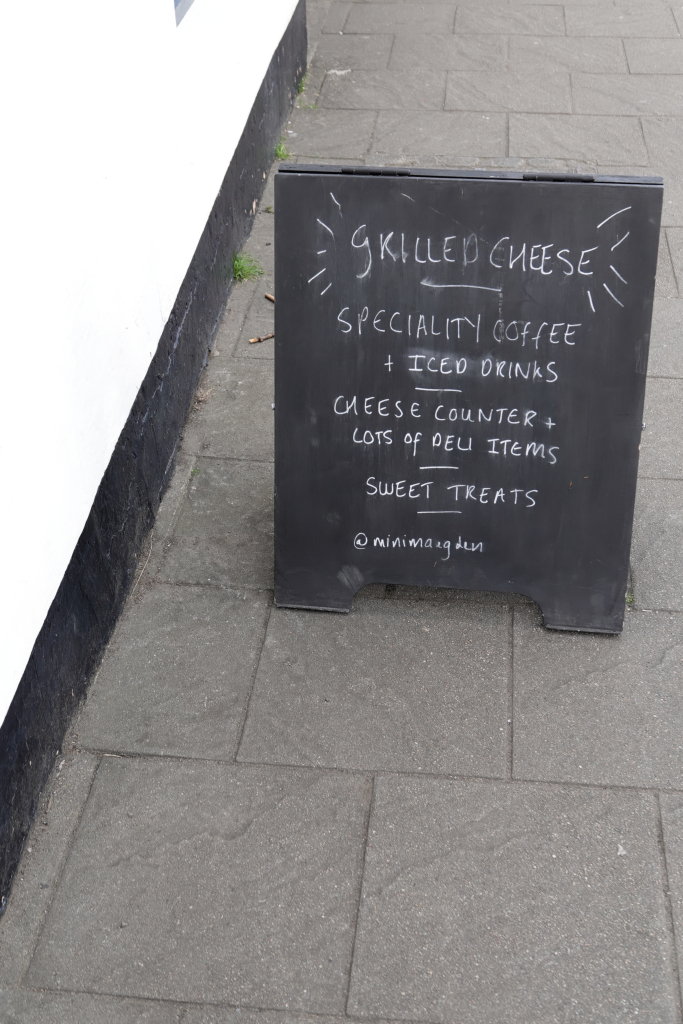 GRILLED CHEESE
SPECIALITY COFFEE
+ ICED DRINKS
CHEESE COUNTER +
LOTS OF DELI ITEMS
SWEET TREATS
@minimaegden